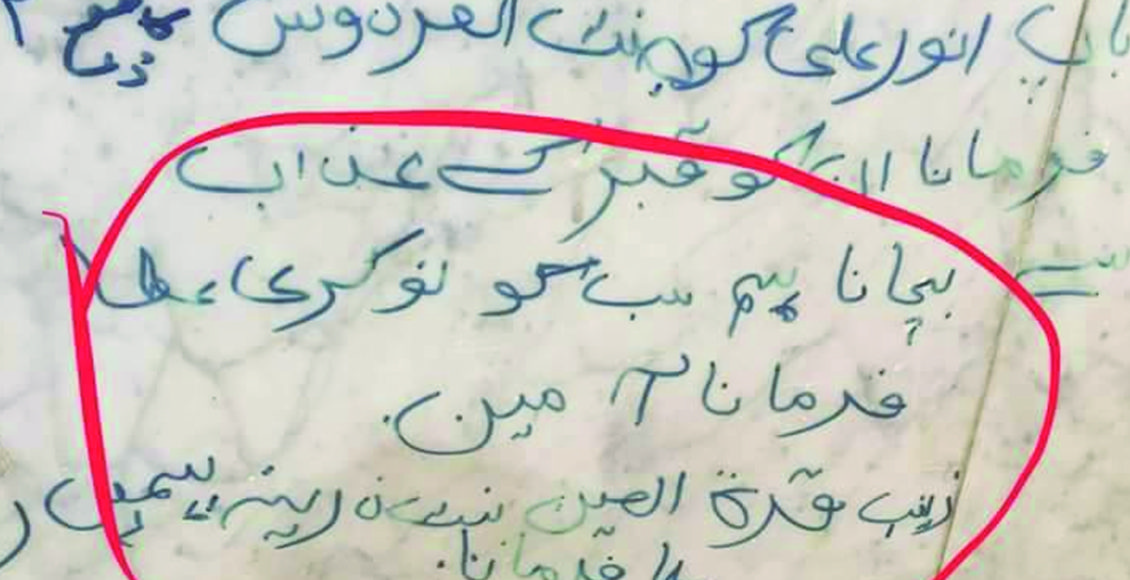 باپ انور علی کو جنت الفردوس میں
فرمانا ان کو قبر کے عذاب
سے بچانا ہم سب کو نوکری عطا
فرمانا آمین.
زینب قرۃ العین
فرمانا.